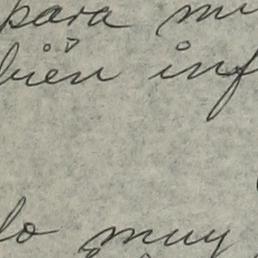 para mi
bién inf
lo muy